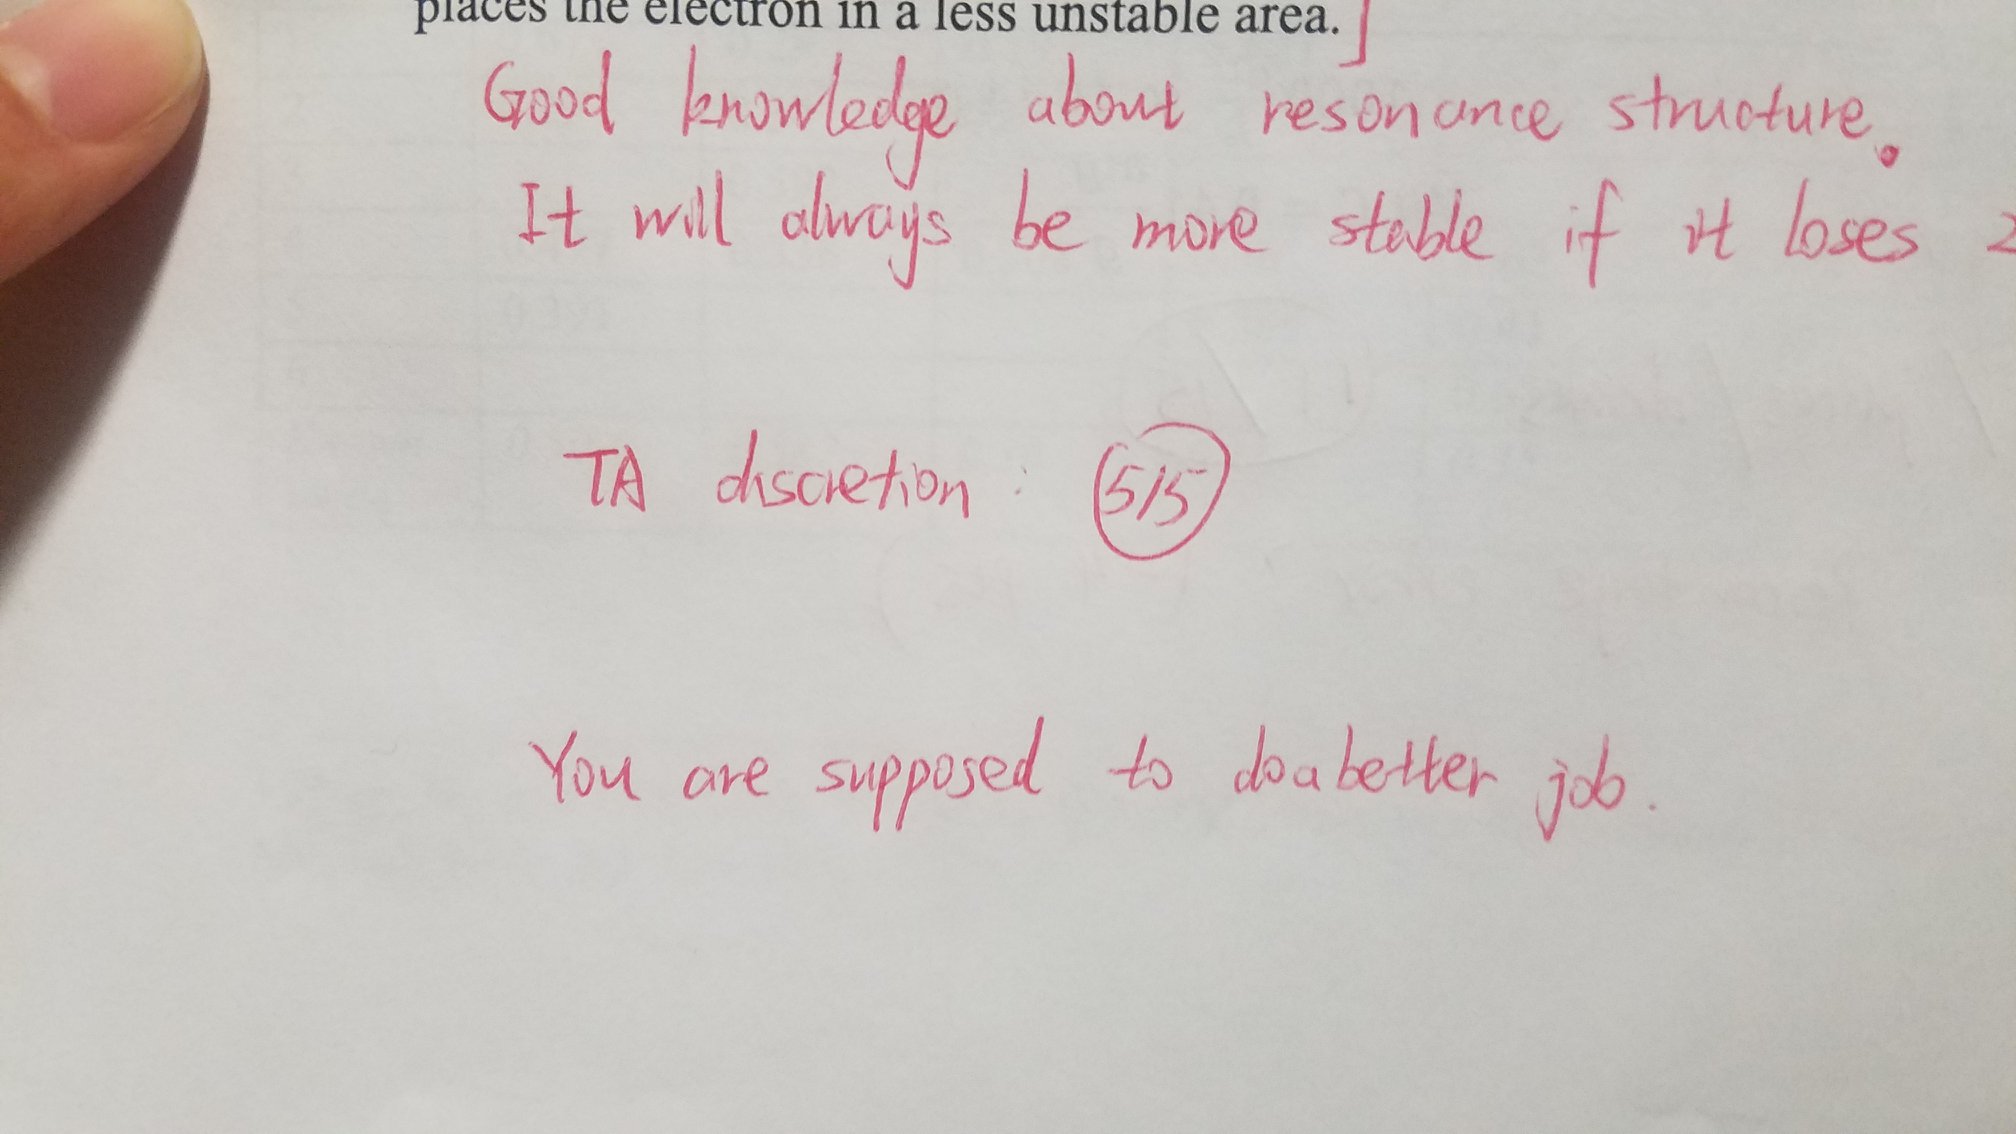 places the electron in a less unstable area.
Good knowledge about resonance structure.
It will always be more stable if it loses 2
TA discretion : 5/5
You are supposed to do a better job.